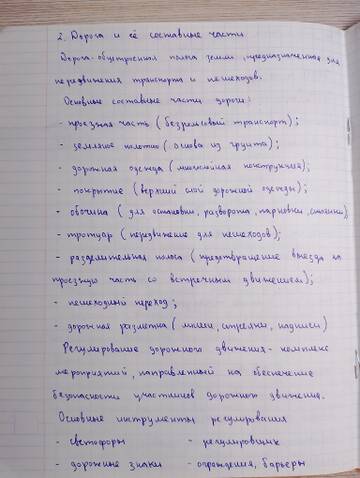 2. Дорога и её составные части
Дорога - обустроенная полоса земли, предназначенная для
передвижения транспорта и пешеходов.
Основные составные части дороги:
- проезжая часть (безрельсовый транспорт);
- земляное полотно (основа из грунта);
- дорожная одежда (многослойная конструкция);
- покрытие (верхний слой дорожной одежды);
- обочина (для остановки, разворота, парковки, стоянки)
- тротуар (передвижение для пешеходов);
- разделительная полоса (предотвращение выезда на
проезжую часть со встречным движением);
- пешеходный переход;
- дорожная разметка (линии, стрелки, надписи)
Регулирование дорожного движения - комплекс
мероприятий, направленный на обеспечение
безопасности участников дорожного движения.
Основные инструменты регулирования
- светофоры - регулировщик
- дорожные знаки - ограждения, барьеры